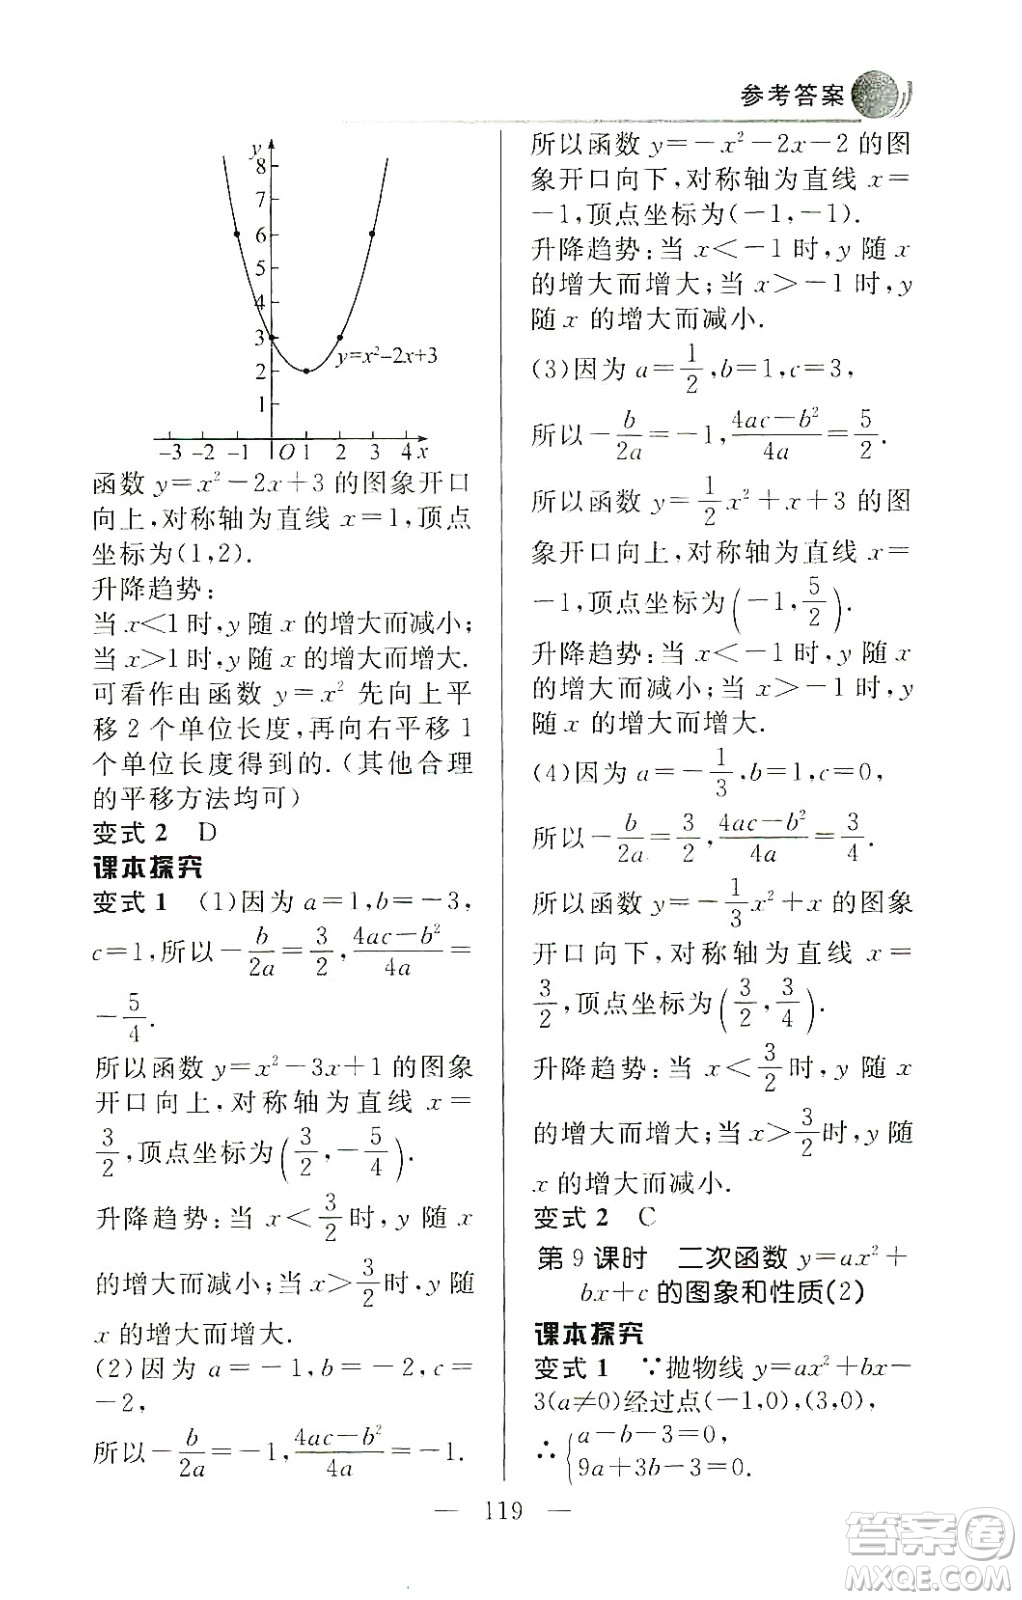 参考答案
y
8
7
6
5
4
3
2
1
y=x²-2x+3
-3 -2 -1 O 1 2 3 4 x
函数 y=x²-2x+3 的图象开口
向上,对称轴为直线 x=1,顶点
坐标为(1,2).
升降趋势:
当 x<1时,y 随 x 的增大而减小;
当 x>1时,y 随 x 的增大而增大.
可看作由函数 y=x² 先向上平
移 2 个单位长度,再向右平移 1
个单位长度得到的.(其他合理
的平移方法均可)
变式 2 D
课本探究
变式 1 (1)因为 a=1,b=-3,
c=1,所以-b/2a=3/2,(4ac-b²)/4a=
-5/4.
所以函数 y=x²-3x+1 的图象
开口向上,对称轴为直线 x=
3/2,顶点坐标为(3/2,-5/4).
升降趋势:当 x<3/2时,y 随 x
的增大而减小;当 x>3/2时,y 随
x 的增大而增大.
(2)因为 a=-1,b=-2,c=
-2,
所以-b/2a=-1,(4ac-b²)/4a=-1.
所以函数 y=-x²-2x-2 的图
象开口向下,对称轴为直线 x=
-1,顶点坐标为(-1,-1).
升降趋势:当 x<-1时,y 随 x
的增大而增大;当 x>-1时,y
随 x 的增大而减小.
(3)因为 a=1/2,b=1,c=3,
所以-b/2a=-1,(4ac-b²)/4a=5/2.
所以函数 y=1/2x²+x+3 的图
象开口向上,对称轴为直线 x=
-1,顶点坐标为(-1,5/2).
升降趋势:当 x<-1时,y 随 x
的增大而减小;当 x>-1时,y
随 x 的增大而增大.
(4)因为 a=-1/3,b=1,c=0,
所以-b/2a=3/2,(4ac-b²)/4a=3/4.
所以函数 y=-1/3x²+x 的图象
开口向下,对称轴为直线 x=
3/2,顶点坐标为(3/2,3/4).
升降趋势:当 x<3/2时,y 随 x
的增大而增大;当 x>3/2时,y 随
x 的增大而减小.
变式 2 C
第 9 课时 二次函数 y=ax²+
bx+c 的图象和性质(2)
课本探究
变式 1 ∵抛物线 y=ax²+bx-
3(a≠0)经过点(-1,0),(3,0),
∴{a-b-3=0,
9a+3b-3=0.
— 119 —
答案圈
MXQE.COM